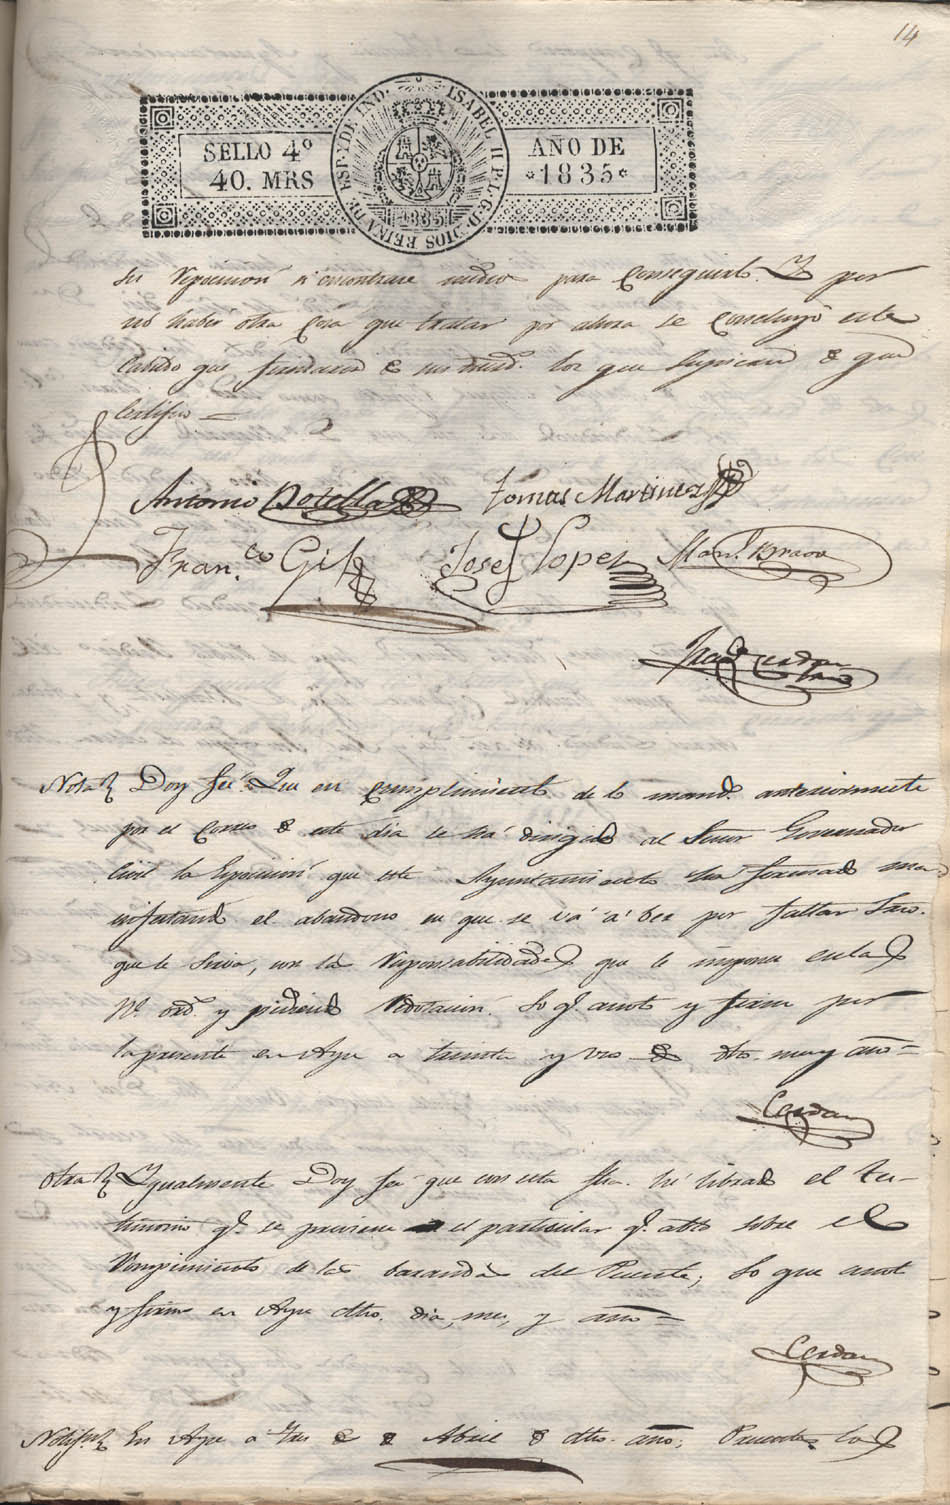 14
SELLO 4º
40. MRS
AÑO DE
1835
ISABEL II P. L. G. D. DIOS REINA DE ESP. Y DE IND.
1835
su Reposicion medio para Conseguirlo. Y por
no haber otra Cosa que tratar por ahora se Concluyó este
Cabildo que firmaron los que supieron de que
Certifico =
Antonio Botella Tomas Martinez
Fran.co Gil Josef Lopez Man.l Bravo
Nota Doy feé: Que en cumplimiento de lo mand.º anteriormente
por el Correo de este dia se há dirigido al Señor Governador
Civil la Esposicion que este Ayuntamiento ha formado ma-
nifestando el abandono en que se vá á ber por faltar Srio.
que le sirva, con la Responsabilidad que le impone en la
R.l ord.n y pidiendo Redotacion. Lo q.e anoto y firmo por
la presente en Aye a treinta y uno de dho. mes y año =
Cerdan
Otra Ygualmente Doy feé que con esta fha. hé librado el tes-
timonio q.e se previene en el particular q.e sobre el
Rompimiento de las barandas del Puente; Lo que anoto
y firmo en Aye dho. dia, mes, y año =
Cerdan
Notif.n En Aye a tres de Abril de dho. año;